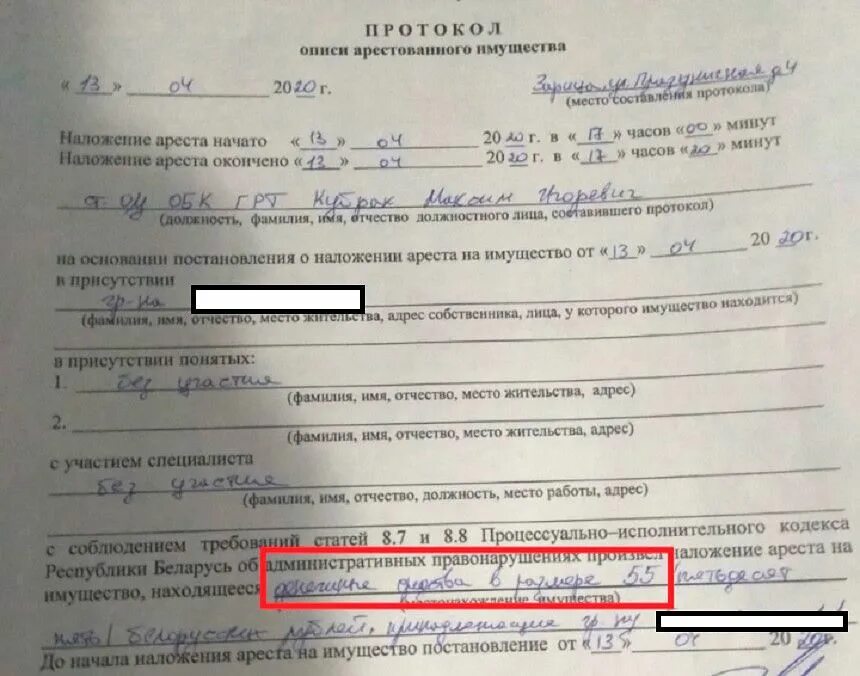 ПРОТОКОЛ
описи арестованного имущества
« 13 » 04 2020 г.
Зарица ул. д 4
(место составления протокола)
Наложение ареста начато « 13 » 04 2020 г. в « 17 » часов « 00 » минут
Наложение ареста окончено « 13 » 04 2020 г. в « 17 » часов « 20 » минут
ст. ОУ ОБК ГРТ Кубрак Максим Игоревич
(должность, фамилия, имя, отчество должностного лица, составившего протокол)
на основании постановления о наложении ареста на имущество от « 13 » 04 2020г.
в присутствии
гр-на
(фамилия, имя, отчество, место жительства, адрес собственника, лица, у которого имущество находится)
в присутствии понятых:
1. без участия
(фамилия, имя, отчество, место жительства, адрес)
2.
(фамилия, имя, отчество, место жительства, адрес)
с участием специалиста
без участия
(фамилия, имя, отчество, должность, место работы, адрес)
с соблюдением требований статей 8.7 и 8.8 Процессуально–исполнительного кодекса
Республики Беларусь об административных правонарушениях произвел наложение ареста на
имущество, находящееся денежные средства в размере 55 /пятьдесят
(местонахождение имущества)
пять/ белорусских рублей, принадлежащие гр-ну
До начала наложения ареста на имущество постановление от « 13 » 04 2020г.